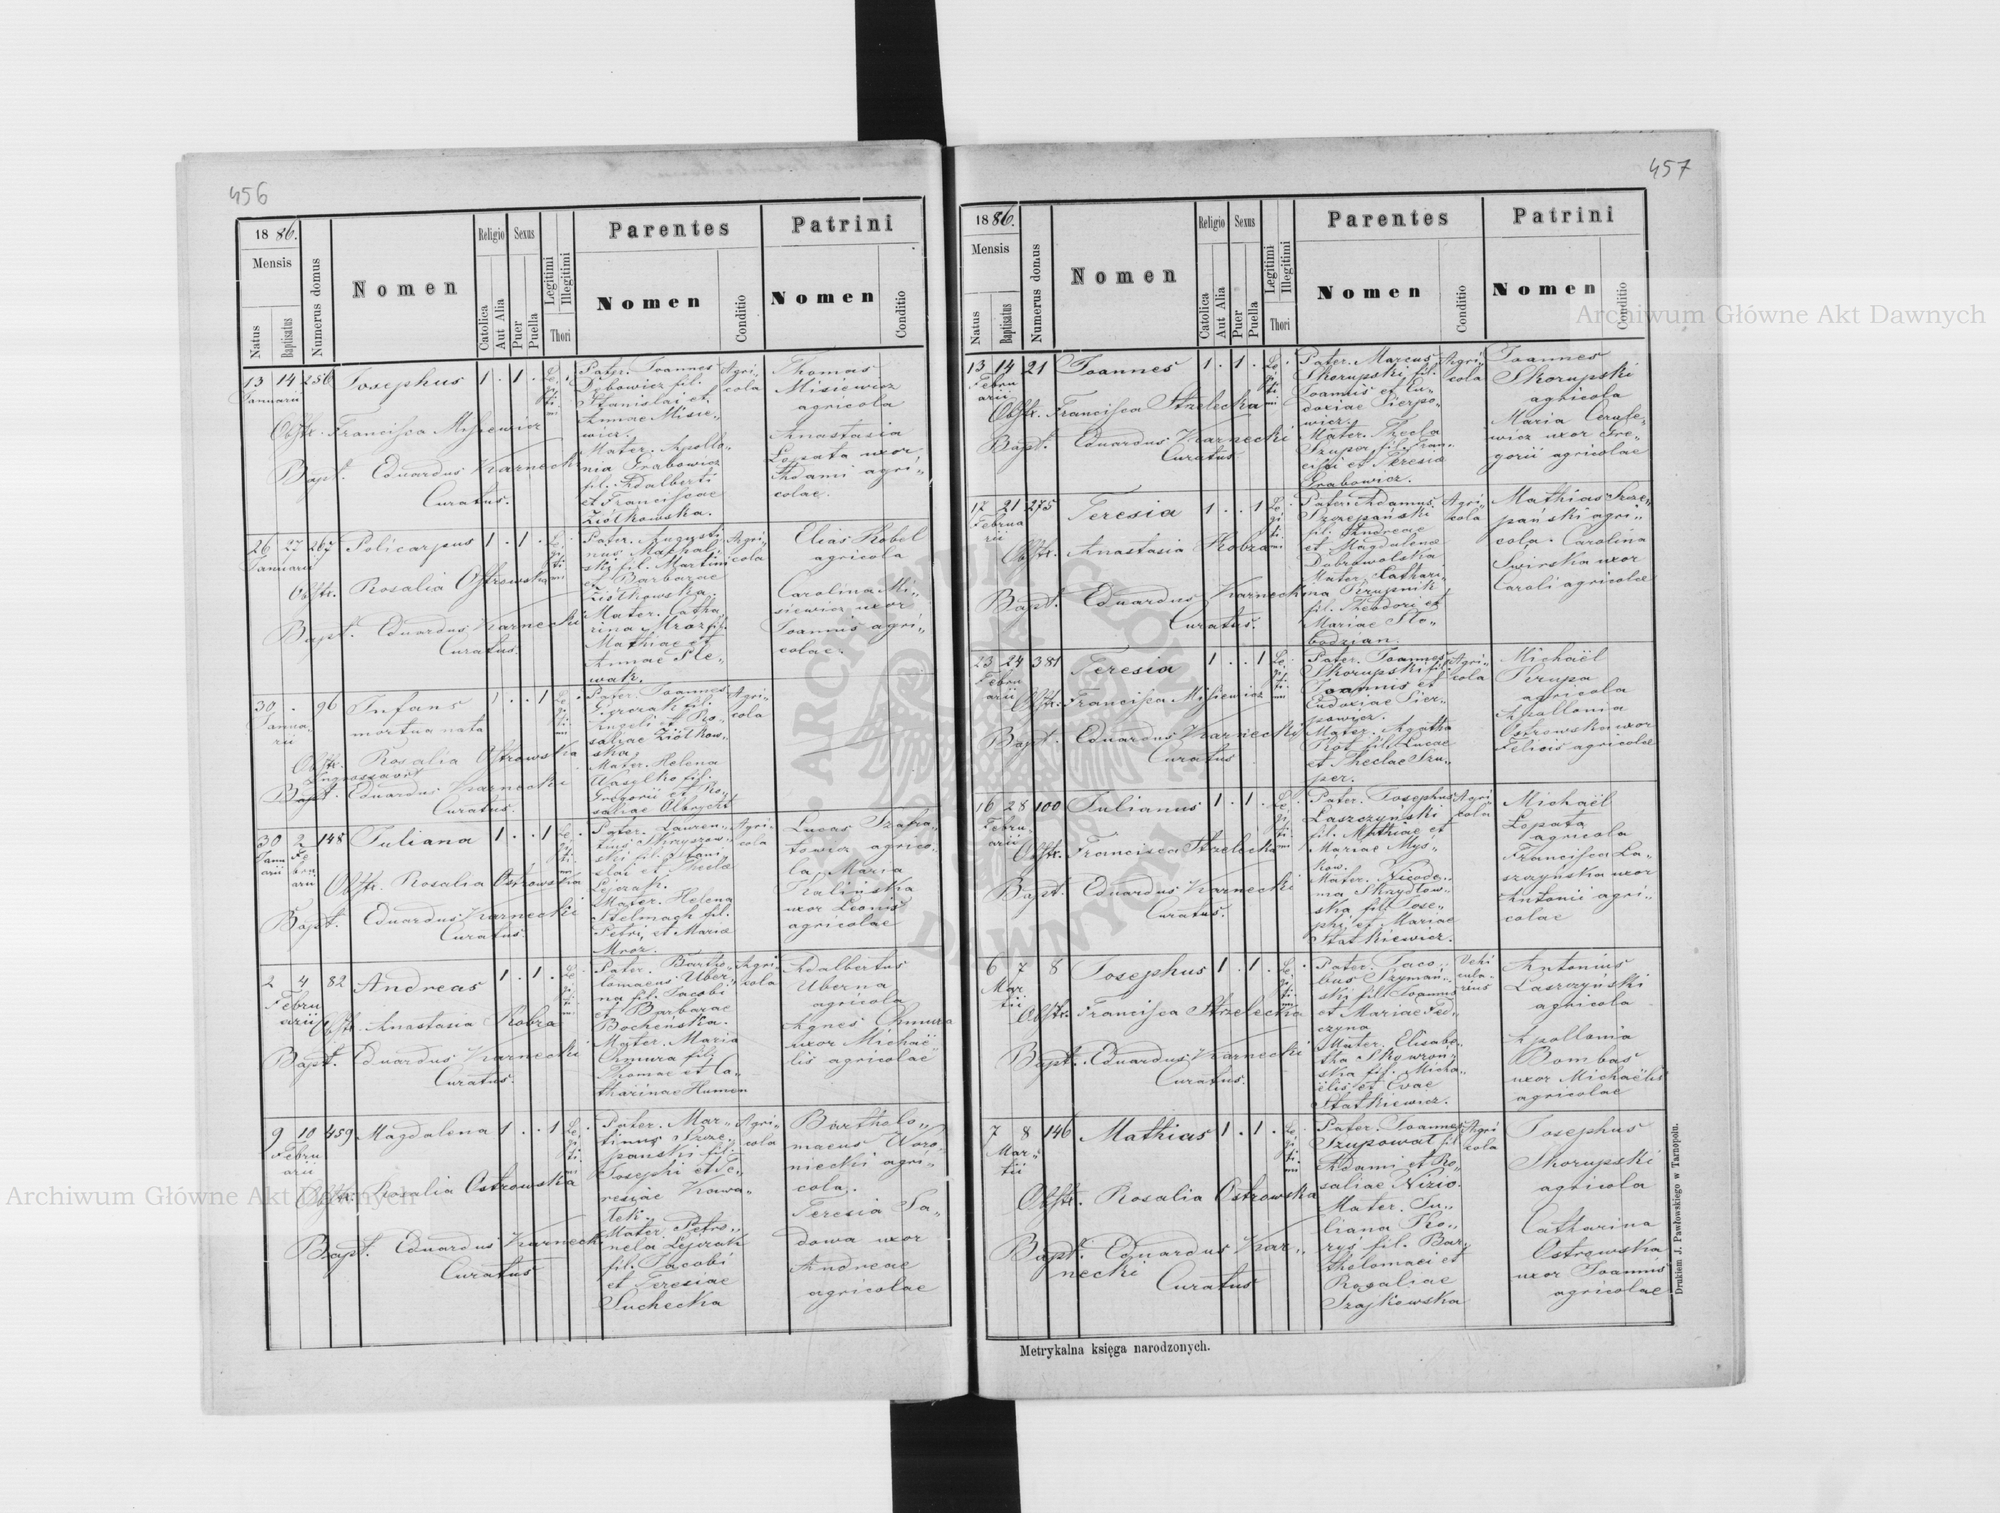 456
1886.
Mensis
Natus
Baptisatus
Numerus domus
Nomen
Religio
Catolica
Aut Alia
Sexus
Puer
Puella
Legitimi
Illegitimi
Thori
Parentes
Nomen
Conditio
Patrini
Nomen
Conditio
13 14 256 Josephus 1 . 1 .
Januarii
Obstr. Francisca Misiewicz
Bapt. Eduardus Karnecki
Curatus.
Pater. Joannes
Dębowicz fil.
Stanislai et
Annae Misie-
wicz.
Mater. Apollo-
nia Grabowicz
fil. Adalberti
et Franciscae
Ziółkowska.
Agri-
cola
Thomas
Misiewicz
agricola
Anastasia
Lopata uxor
Adami agri-
colae.
26 27 267 Policarpus 1 . 1 .
Januarii
Obstr. Rosalia Ostrowska
Bapt. Eduardus Karnecki
Curatus.
Pater. Augusti-
nus
ski fil. Martini
et Barbarae
Ziółkowska.
Mater. Catha-
rina Mroz fil.
Mathiae et
Annae Sle-
wak.
Agri-
cola
Elias Kobel
agricola
Carolina Mi-
siewicz uxor
Joannis agri-
colae.
30 . 96 Infans 1 . . 1
Janua-
rii
mortua nata
Obstr. Rosalia Ostrowska
Ingrossavit
Bapt. Eduardus Karnecki
Curatus.
Pater. Joannes
fil.
et Ro-
saliae Ziółkow-
ska.
Mater. Helena
Wasylko fil.
Gregorii et Ro-
saliae Olbrycht
Agri-
cola
30 2 148 Juliana 1 . . 1
Janu
arii
Fe
bru
arii
Obstr. Rosalia Ostrowska
Bapt. Eduardus Karnecki
Curatus.
Pater. Lauren-
tius
ski fil. Stani-
slai et Theclae
Lejczak.
Mater. Helena
Stelmach fil.
Petri, et Mariae
Mroz.
Agri-
cola
Lucas Szafra-
towicz agrico-
la, Maria
Kalińska
uxor Leonis
agricolae
2 4 82 Andreas 1 . 1 .
Febru
arii
Obstr. Anastasia Kobza
Bapt. Eduardus Karnecki
Curatus.
Pater. Bartho-
lomaeus Uber-
na fil. Jacobi
et Barbarae
Bocheńska.
Mater. Maria
Chmura fil.
Thomae et Ca-
tharinae Humen
Agri-
cola
Adalbertus
Uberna
agricola
Agnes Chmura
uxor Michaë-
lis agricolae
9 10 459 Magdalena 1 . . 1
Febru
arii
Obstr. Rosalia Ostrowska
Bapt. Eduardus Karnecki
Curatus
Pater. Mar-
tinus Szcze-
pański fil.
Josephi et Te-
resiae Kawa-
tek.
Mater. Petro-
nela Lejczak
fil. Jacobi
et Teresiae
Suchecka
Agri-
cola
Bartholo-
maeus Woro-
niecki agri-
cola.
Teresia Sa-
dowa uxor
Andreae
agricolae
457
1886.
Mensis
Natus
Baptisatus
Numerus domus
Nomen
Religio
Catolica
Aut Alia
Sexus
Puer
Puella
Legitimi
Illegitimi
Thori
Parentes
Nomen
Conditio
Patrini
Nomen
Conditio
13 14 21 Joannes 1 . 1 .
Febru
arii
Obstr. Francisca Strzelecka
Bapt. Eduardus Karnecki
Curatus
Pater. Marcus
Skorupski, fil.
Joannis et Eu-
doxiae Sierpo-
wicz.
Mater. Thecla
Szupa fil. Fran-
cisci et Teresiae
Grabowicz.
Agri-
cola
Joannes
Skorupski
agricola
Maria Ceruse-
wicz uxor Gre-
gorii agricolae
17 21 275 Teresia 1 . . 1
Februa
rii
Obstr. Anastasia Kobza
Bapt. Eduardus Karnecki
Curatus.
Pater. Adamus
Szczepański
fil. Andreae
et Magdalenae
Dobrowolska
Mater. Cathari-
na Krupnik
fil. Theodori et
Mariae Slo-
bodzian.
Agri-
cola
Mathias Szcze-
pański agri-
cola. Carolina
Swirska uxor
Caroli agricolae
23 24 381 Teresia 1 . . 1
Febru
arii
Obstr. Francisca Misiewicz
Bapt. Eduardus Karnecki
Curatus
Pater. Joannes
Skorupski fil.
Joannis et
Eudoxiae Sier-
powicz.
Mater. Agatha
Kot fil. Lucae
et Theclae Szu-
per.
Agri-
cola
Michaël
Krupa
agricola
Apollonia
Ostrowska uxor
Felicis agricolae
16 28 100 Julianus 1 . 1 .
Febru-
arii
Obstr. Francisca Strzelecka
Bapt. Eduardus Karnecki
Curatus.
Pater. Josephus
Laszczyński
fil. Mathiae et
Mariae Myś-
ków.
Mater. Nicode-
ma Skrzydłow-
ska fil. Jose-
phi, et Mariae
Statkiewicz.
Agri-
cola
Michaël
Lopata
agricola
Francisca La-
szczyńska uxor
Antonii agri-
colae
6 7 8 Josephus 1 . 1 .
Mar
tii
Obstr. Francisca Strzelecka
Bapt. Eduardus Karnecki
Curatus.
Pater. Jaco-
bus Szymań-
ski fil. Joannis
et Mariae Fed-
czyna
Mater. Elisabe-
tha Skowron-
ska fil. Micha-
ëlis et Evae
Statkiewicz.
Vehi
cula-
rius
Antonius
Laszczyński
agricola
Apollonia
Bombas
uxor Michaëlis
agricolae
7 8 146 Mathias 1 . 1 .
Mar-
tii
Obstr. Rosalia Ostrowska
Bapt. Eduardus Kar-
necki
Curatus
Pater. Joannes
Szupowat fil.
Adami et Ro-
saliae Nizio.
Mater. Ju-
liana Ko-
ryś fil. Bar-
tholomaei et
Rosaliae
Szajkowska
Agri
cola
Josephus
Skorupski
agricola
Catharina
Ostrowska
uxor Joannis
agricolae
Metrykalna księga narodzonych.
Drukiem J. Pawłowskiego w Tarnopolu.
Archiwum Główne Akt Dawnych
Archiwum Główne Akt Dawnych
ARCHIWUM GŁÓWNE AKT DAWNYCH